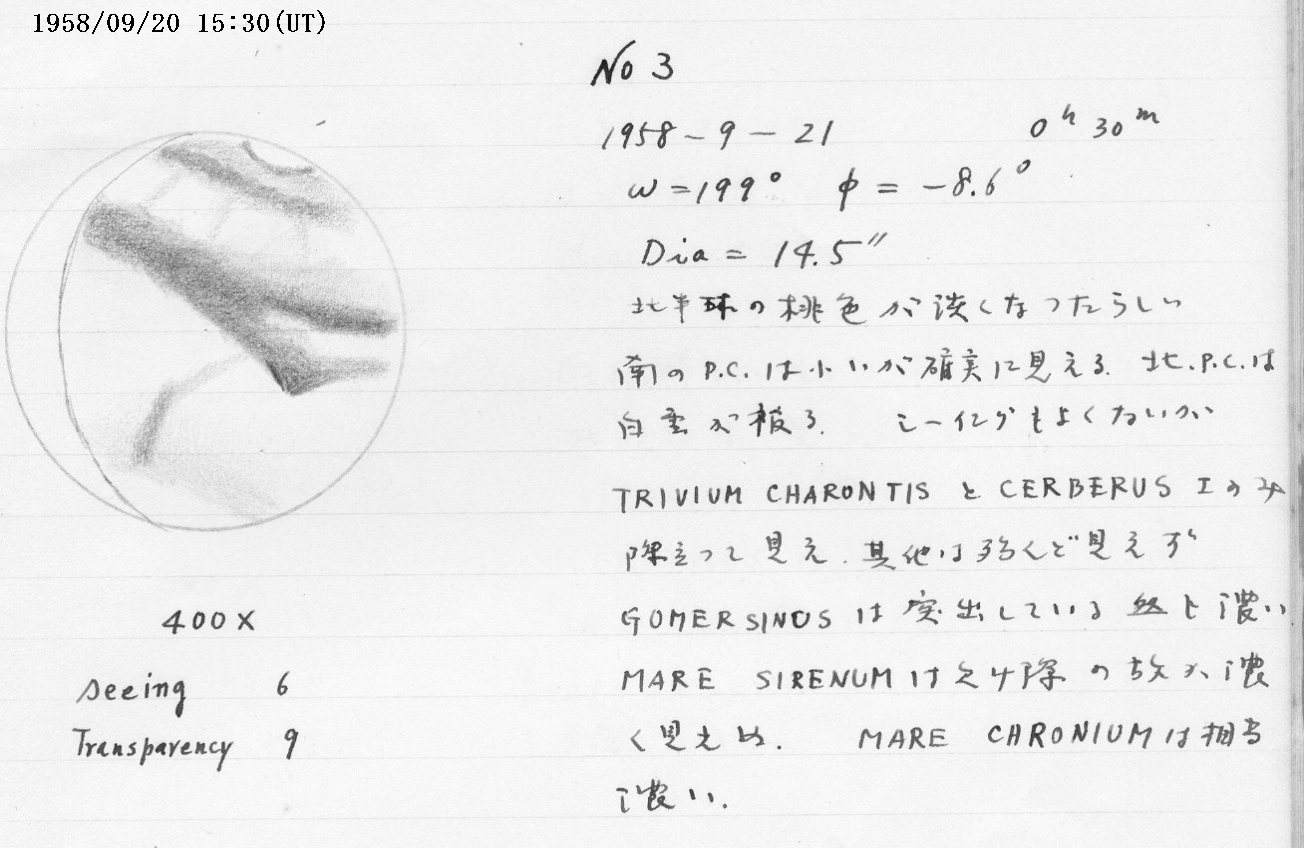 1958/09/20 15:30(UT)
No 3
1958-9-21 0h 30m
ω=199° φ = -8.6°
Dia = 14.5"
北半球の桃色が淡くなつたらしい
南のP.C.は小いが確実に見える. 北.P.C.は
白雲が被る. シーイングもよくないが
TRIVIUM CHARONTIS と CERBERUS Iのみ
際立つて見え. 其他は殆んど見えず
GOMER SINUS は突出している 点と濃い
MARE SIRENUM は欠け際の故か濃
く見えぬ. MARE CHRONIUM は相当
濃い.
400×
seeing 6
Transparency 9